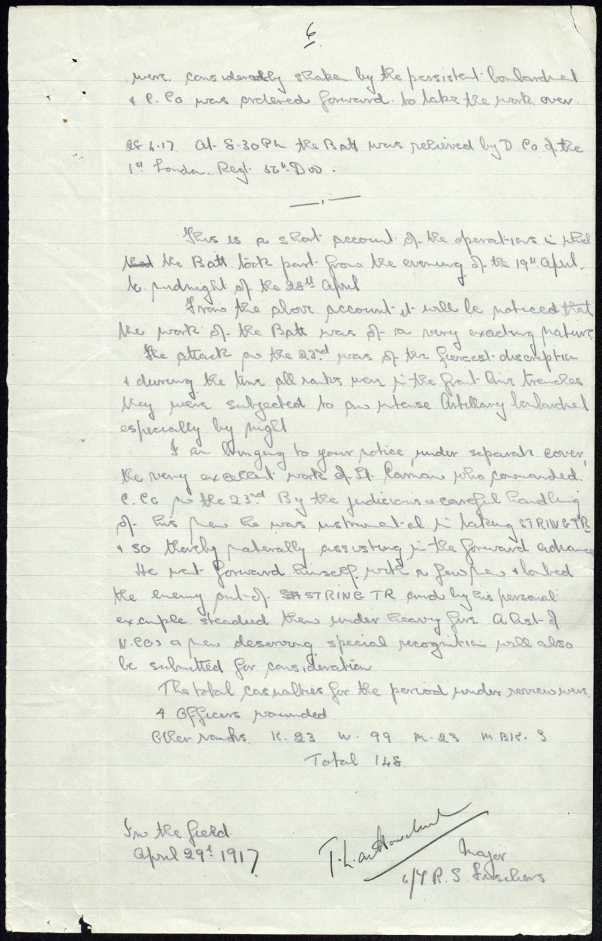 6
were considerably shaken by the persistent bombardmet
& C. Co was ordered forward to take the work over.
28.4.17 At 8-30 PM the Batt was relieved by D Co of the
1st London. Regt. 56th Div.
This is a short account of the operations in which
that the Batt took part from the evening of the 19th April.
to midnight of the 28th April
From the above account it will be noticed that
the work of the Batt was of a very exacting nature
The attack on the 23rd was of the fiercest discription
& during the time all ranks were in the front line trenches
they were subjected to an intense Artillery bombardmet
especially by night
I am bringing to your notice, under separate cover,
the very excellent work of Lt. who commanded
C. Co on the 23rd By the judicious & careful handling
of his men he was instrumental in taking STRING TR
& so thereby materially assisting in the forward advance
He went forward himself with a few men & bombed
the enemy out of STRING TR and by his personal
example steadied them under heavy fire. A list of
N.COs & men deserving special recognition will also
be submitted for consideration
The total casualties for the period under review were
4 Officers wounded
Other ranks. K. 23 W. 99 M. 23 M Blk. 3
Total 148
In the field
April 29th 1917
Major
6/7 R. S. Fusiliers